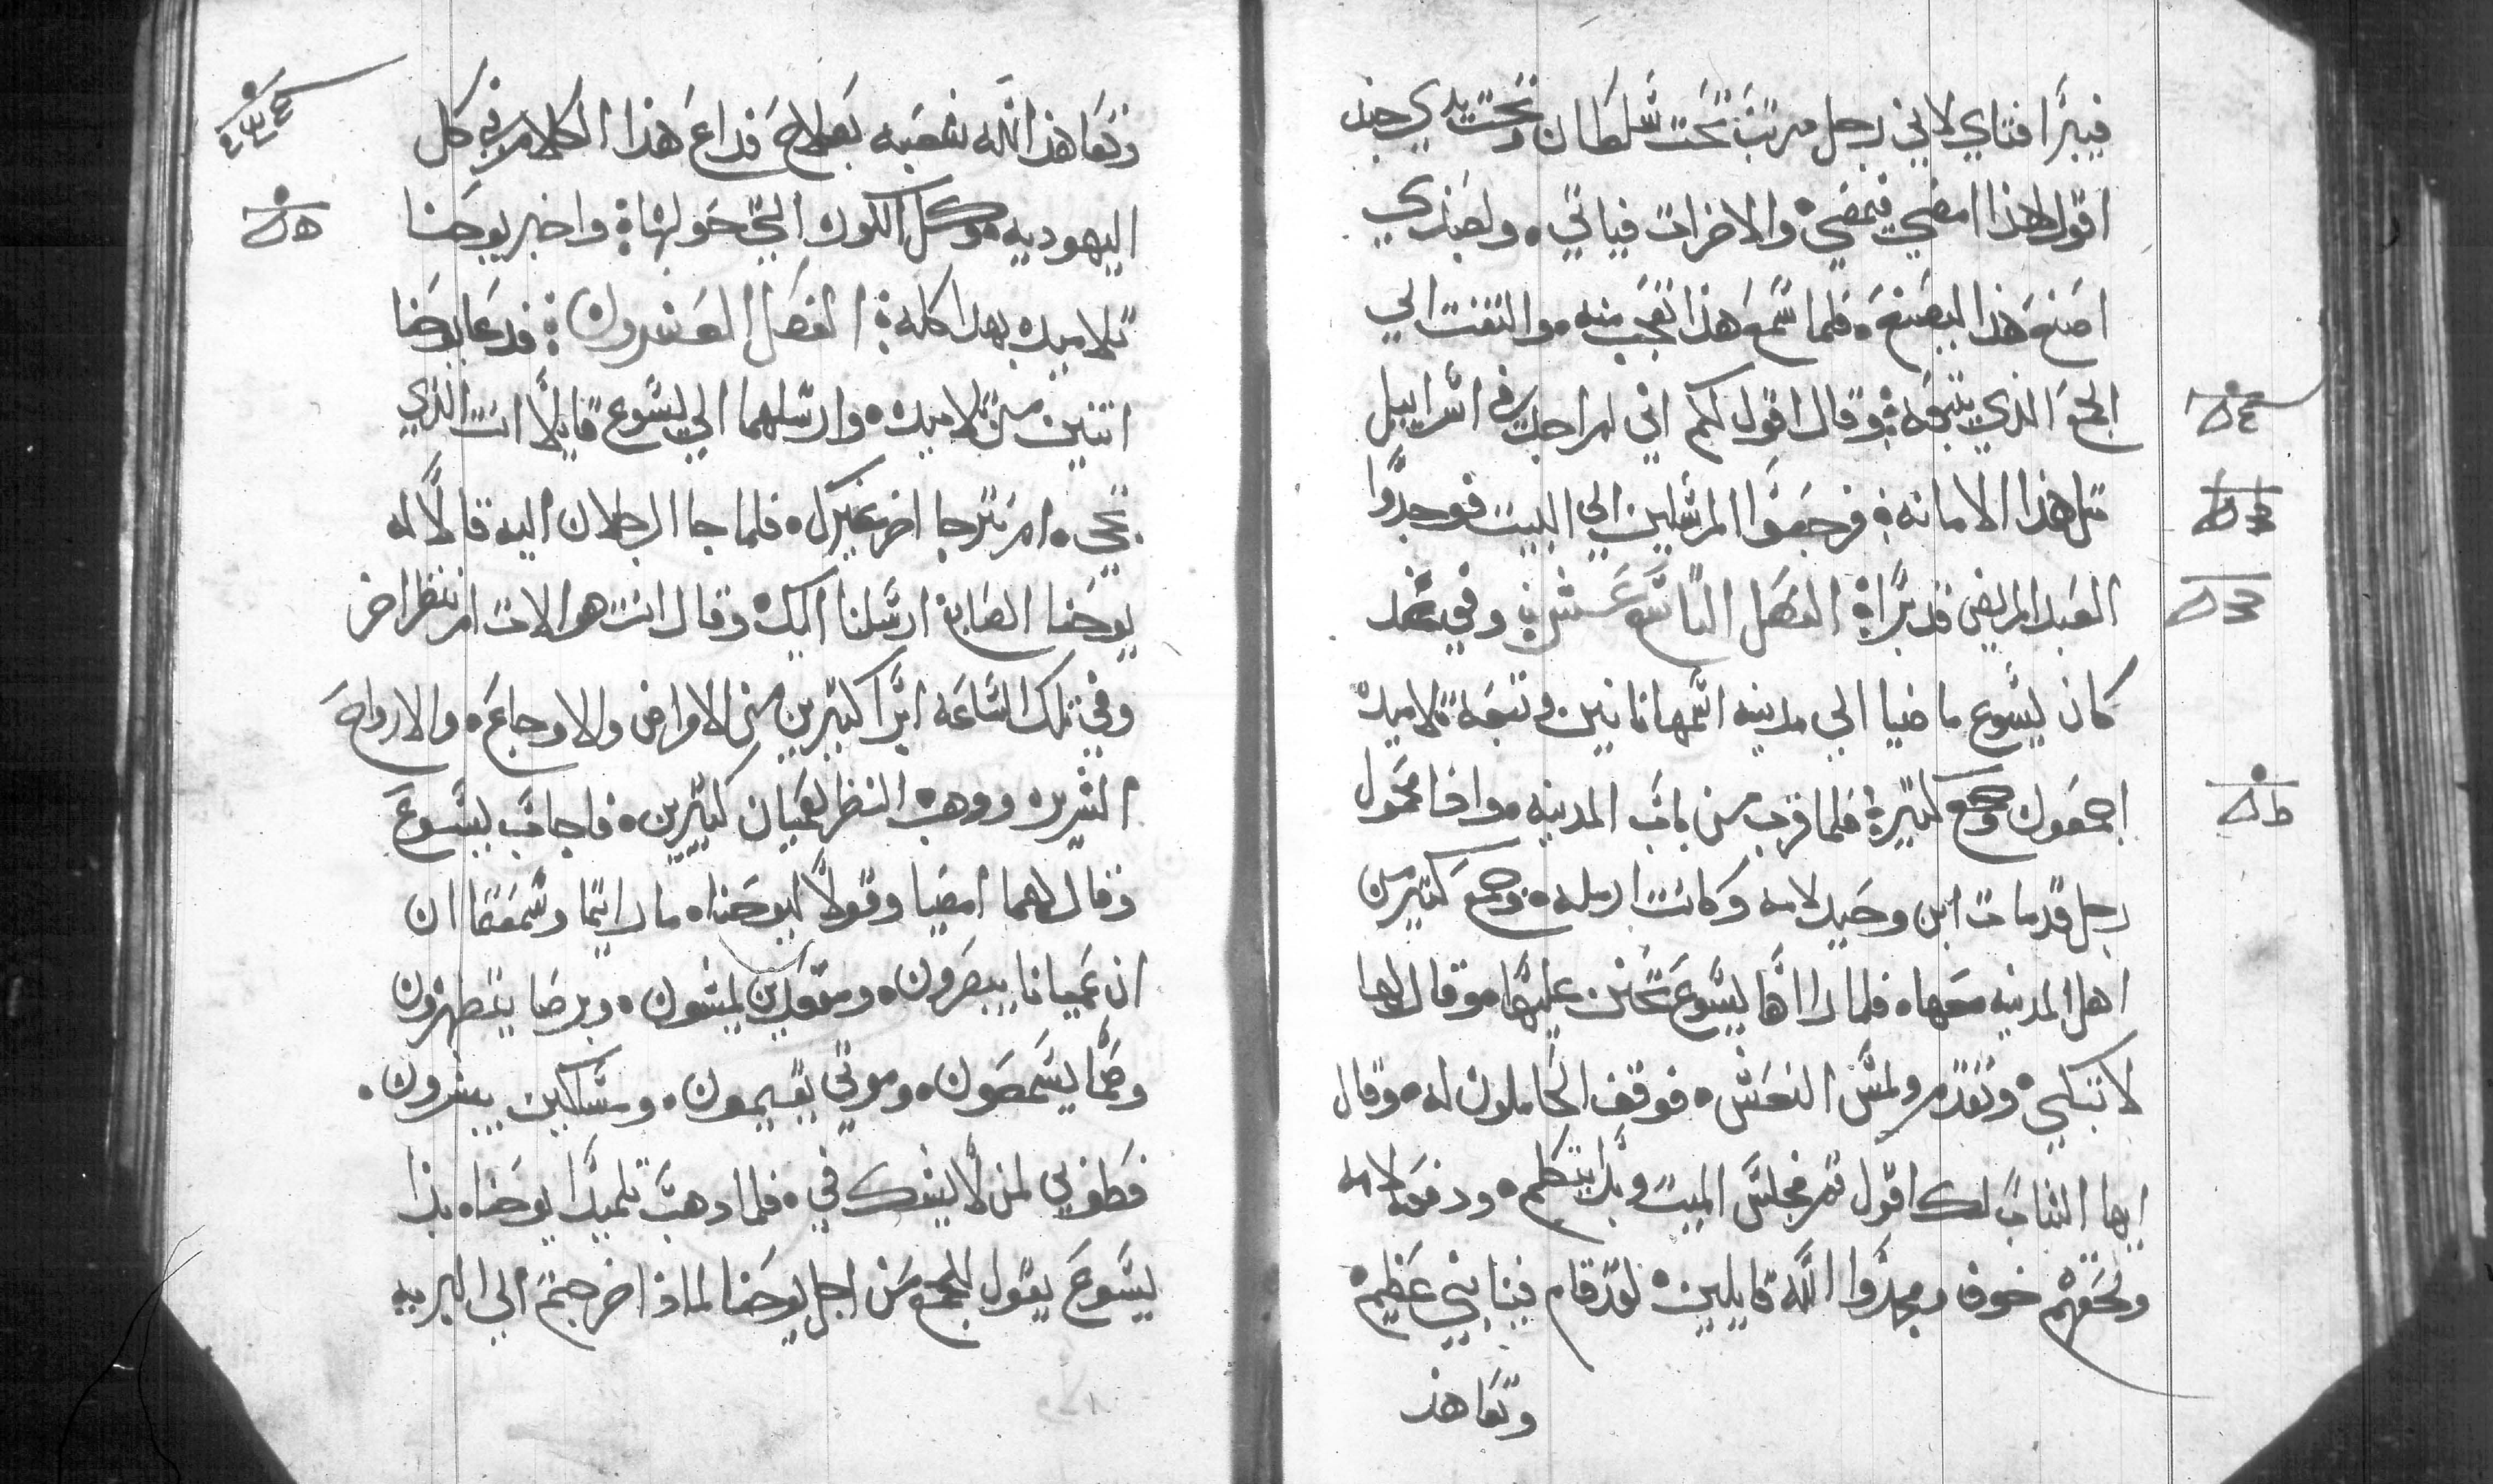 فيبرا فتاي لاني رجل مرتب تحت سلطان وتحت يدي جند
اقول لهذا امضي فيمضي والاخرات فياتي ولعبدي
اصنع هذا ليصنع فلما سمع هذا تعجب منه والتفت الي
الجمع الذي يتبعه وقال اقول لكم اني لم اجد في اسراييل
مثل هذا الامانه فرجعوا المرسلين الي البيت فوجدوا
العبد المريض قد برا الفصل التاسع عشر وفي غد
كان يسوع ماضيا الي مدينه اسمها نايين و تتبعه تلاميده
اجمعون وجمع كتيره فلما قرب من باب المدينه وادا محمول
رجل قد مات ابن وحيد لامه وكانت ارمله وجمع كتير من
اهل المدينه معها فلما راها يسوع تحنن عليها وقال لها
لا تبكي وتقدم ولمس النعش فوقف الحاملون له وقال
ايها الشاب لك اقول قم فجلس الميت وبدا يتكلم ودفعه لامه
ولحقهم خوف ومجدوا الله قايلين لقد قام فينا نبي عظيم
وتعاهد
وتعاهد الله شعبه بصلاح فداع هذا الكلام في كل
اليهوديه وكل الكور التي حولها واخبر يوحنا
تلاميده بهدا كله الفصل العشرون فدعا يوحنا
اتنين من تلاميده وارسلهما الي يسوع قايلا انت الذي
تجي ام نترجا اخر غيرك فلما جا الرجلان اليه قالا له
يوحنا الصابغ ارسلنا اليك وقال انت هو الات ام ننتظر اخر
وفي تلك الساعه ابرا كتيرين من الامراض والاوجاع والارواح
الشريره ووهب النظر لعميان كتيرين فاجاب يسوع
وقال لهما امضيا وقولا ليوحنا ما رايتما وسمعتما ان
ان عميانا يبصرون ومقعدين يمشون وبرصا يتطهرون
وصما يسمعون وموتي يقيمون ومساكين يبشرون
فطوبي لمن لا يشك في فلما دهب تلميدا يوحنا بدا
يسوع يقول للجمع من اجل يوحنا لماذا خرجتم الي البريه